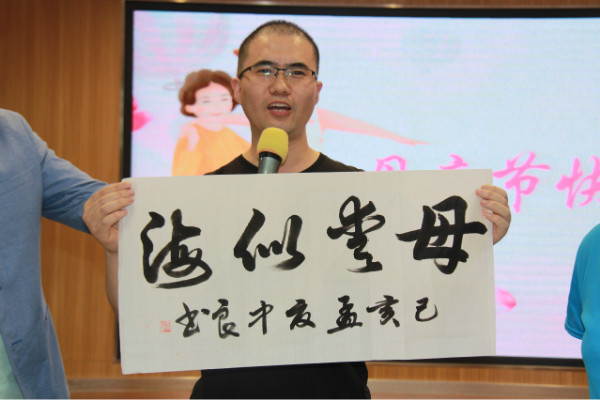 母亲节快
母爱似海
己亥孟夏中良书